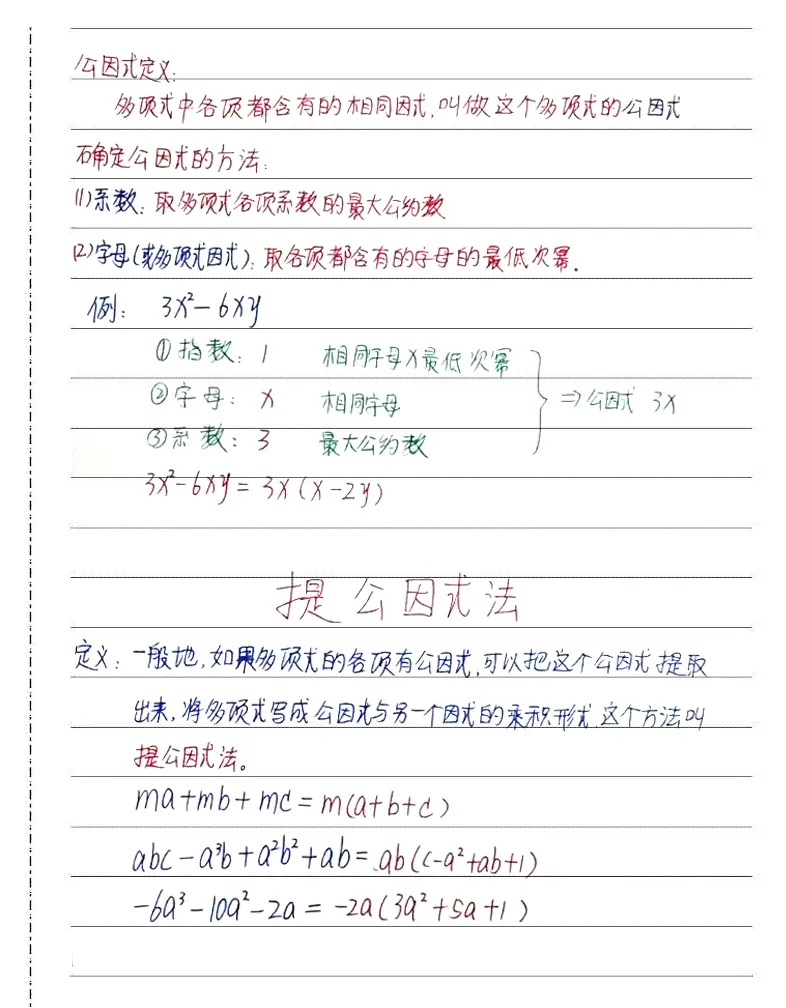 公因式定义:
多项式中各项都含有的相同因式,叫做这个多项式的公因式
确定公因式的方法:
(1)系数:取多项式各项系数的最大公约数
(2)字母(或多项式因式):取各项都含有的字母的最低次幂.
例: 3x²-6xy
①指数: 1 相同字母x最低次幂
②字母: x 相同字母 ⇒公因式 3x
③系数: 3 最大公约数
3x²-6xy=3x(x-2y)
提公因式法
定义:一般地,如果多项式的各项有公因式,可以把这个公因式提取
出来,将多项式写成公因式与另一个因式的乘积形式,这个方法叫
提公因式法。
ma+mb+mc=m(a+b+c)
abc-a³b+a²b²+ab=ab(c-a²+ab+1)
-6a³-10a²-2a=-2a(3a²+5a+1)